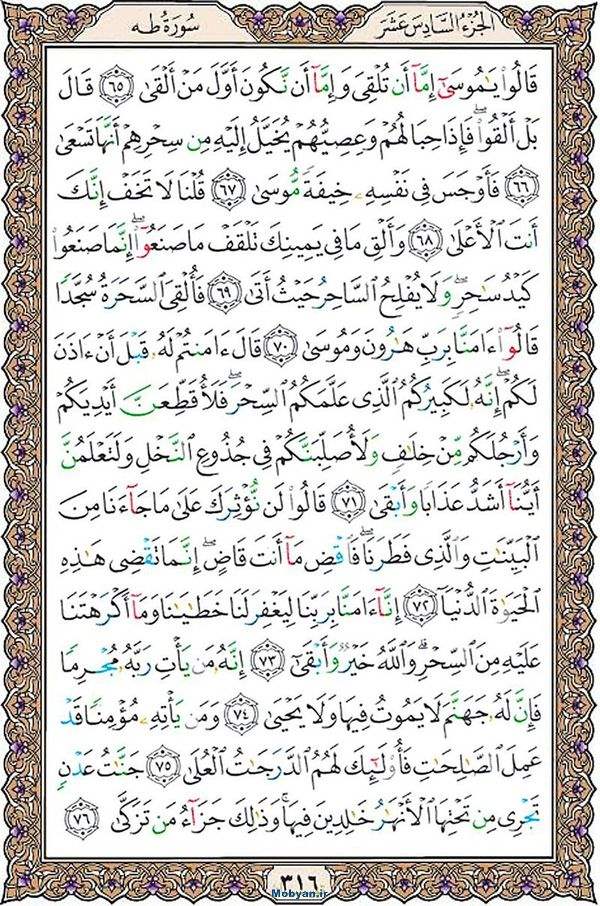 الجزء السادس عشر
سورة طه
قَالُوا۟ يَٰمُوسَىٰٓ إِمَّآ أَن تُلْقِىَ وَإِمَّآ أَن نَّكُونَ أَوَّلَ مَنْ أَلْقَىٰ ٦٥ قَالَ
بَلْ أَلْقُوا۟ۖ فَإِذَا حِبَالُهُمْ وَعِصِيُّهُمْ يُخَيَّلُ إِلَيْهِ مِن سِحْرِهِمْ أَنَّهَا تَسْعَىٰ
٦٦ فَأَوْجَسَ فِى نَفْسِهِۦ خِيفَةً مُّوسَىٰ ٦٧ قُلْنَا لَا تَخَفْ إِنَّكَ
أَنتَ الْأَعْلَىٰ ٦٨ وَأَلْقِ مَا فِى يَمِينِكَ تَلْقَفْ مَا صَنَعُوٓا۟ۖ إِنَّمَا صَنَعُوا۟
كَيْدُ سَٰحِرٍۖ وَلَا يُفْلِحُ السَّاحِرُ حَيْثُ أَتَىٰ ٦٩ فَأُلْقِىَ السَّحَرَةُ سُجَّدًا
قَالُوٓا۟ ءَامَنَّا بِرَبِّ هَٰرُونَ وَمُوسَىٰ ٧٠ قَالَ ءَامَنتُمْ لَهُۥ قَبْلَ أَنْ ءَاذَنَ
لَكُمْۖ إِنَّهُۥ لَكَبِيرُكُمُ الَّذِى عَلَّمَكُمُ السِّحْرَۖ فَلَأُقَطِّعَنَّ أَيْدِيَكُمْ
وَأَرْجُلَكُم مِّنْ خِلَٰفٍ وَلَأُصَلِّبَنَّكُمْ فِى جُذُوعِ النَّخْلِ وَلَتَعْلَمُنَّ
أَيُّنَآ أَشَدُّ عَذَابًا وَأَبْقَىٰ ٧١ قَالُوا۟ لَن نُّؤْثِرَكَ عَلَىٰ مَا جَآءَنَا مِنَ
الْبَيِّنَٰتِ وَالَّذِى فَطَرَنَاۖ فَاقْضِ مَآ أَنتَ قَاضٍۖ إِنَّمَا تَقْضِى هَٰذِهِ
الْحَيَوٰةَ الدُّنْيَآ ٧٢ إِنَّآ ءَامَنَّا بِرَبِّنَا لِيَغْفِرَ لَنَا خَطَٰيَٰنَا وَمَآ أَكْرَهْتَنَا
عَلَيْهِ مِنَ السِّحْرِۗ وَاللَّهُ خَيْرٌ وَأَبْقَىٰٓ ٧٣ إِنَّهُۥ مَن يَأْتِ رَبَّهُۥ مُجْرِمًا
فَإِنَّ لَهُۥ جَهَنَّمَ لَا يَمُوتُ فِيهَا وَلَا يَحْيَىٰ ٧٤ وَمَن يَأْتِهِۦ مُؤْمِنًا قَدْ
عَمِلَ الصَّٰلِحَٰتِ فَأُو۟لَٰٓئِكَ لَهُمُ الدَّرَجَٰتُ الْعُلَىٰ ٧٥ جَنَّٰتُ عَدْنٍ
تَجْرِى مِن تَحْتِهَا الْأَنْهَٰرُ خَٰلِدِينَ فِيهَاۚ وَذَٰلِكَ جَزَآءُ مَن تَزَكَّىٰ ٧٦
٣١٦
Mobyan.ir